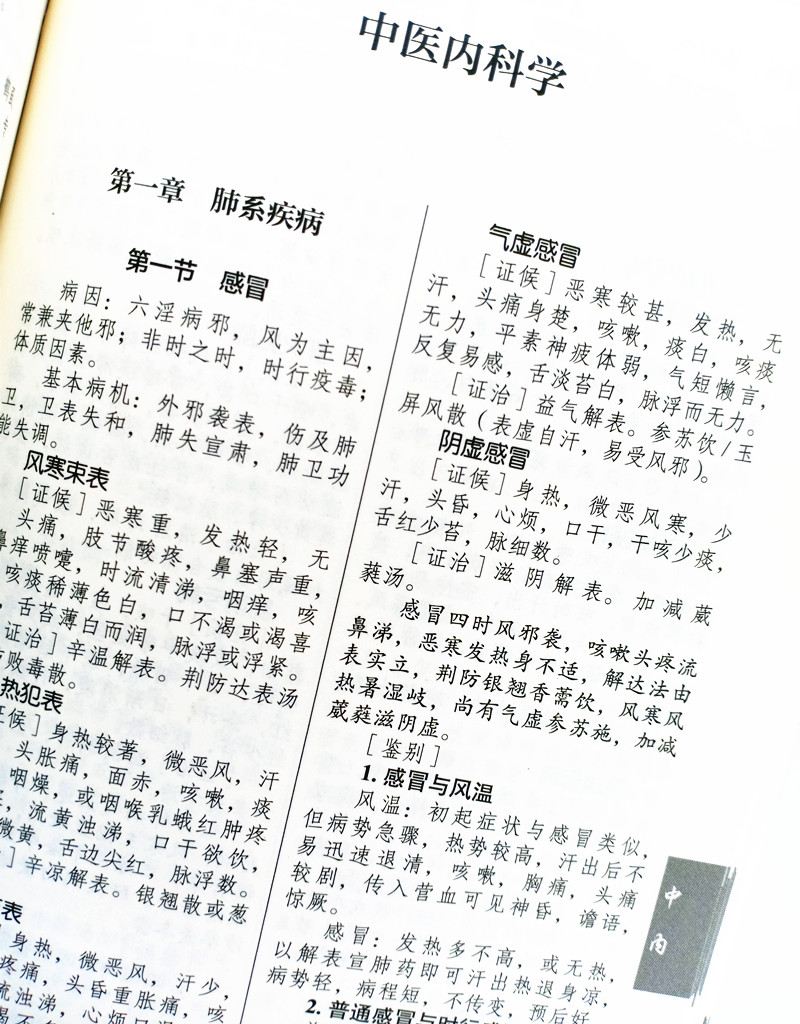 中医内科学
第一章 肺系疾病
第一节 感冒
病因：六淫病邪，风为主因，
常兼夹他邪；非时之时，时行疫毒；
体质因素。
基本病机：外邪袭表，伤及肺
卫，卫表失和，肺失宣肃，肺卫功
能失调。
风寒束表
［证候］恶寒重，发热轻，无
头痛，肢节酸疼，鼻塞声重，
鼻痒喷嚏，时流清涕，咽痒，咳
咳痰稀薄色白，口不渴或渴喜
，舌苔薄白而润，脉浮或浮紧。
证治］辛温解表。荆防达表汤
防败毒散。
热犯表
证候］身热较著，微恶风，汗
头胀痛，面赤，咳嗽，痰
咽燥，或咽喉乳蛾红肿疼
，流黄浊涕，口干欲饮，
微黄，舌边尖红，脉浮数。
］辛凉解表。银翘散或葱
表
身热，微恶风，汗少，
疼痛，头昏重胀痛，咳
流浊涕，心烦口渴
气虚感冒
［证候］恶寒较甚，发热，无
汗，头痛身楚，咳嗽，痰白，咳痰
无力，平素神疲体弱，气短懒言，
反复易感，舌淡苔白，脉浮而无力。
［证治］益气解表。参苏饮/玉
屏风散（表虚自汗，易受风邪）。
阴虚感冒
［证候］身热，微恶风寒，少
汗，头昏，心烦，口干，干咳少痰，
舌红少苔，脉细数。
［证治］滋阴解表。加减葳
蕤汤。
感冒四时风邪袭，咳嗽头疼流
鼻涕，恶寒发热身不适，解达法由
表实立，荆防银翘香薷饮，风寒风
热暑湿岐，尚有气虚参苏施，加减
葳蕤滋阴虚。
［鉴别］
1. 感冒与风温
风温：初起症状与感冒类似，
但病势急骤，热势较高，汗出后不
易迅速退清，咳嗽，胸痛，头痛
较剧，传入营血可见神昏，谵语，
惊厥。
感冒：发热多不高，或无热，
以解表宣肺药即可汗出热退身凉，
病势轻，病程短，不传变，预后好
2. 普通感冒与时行感
中内